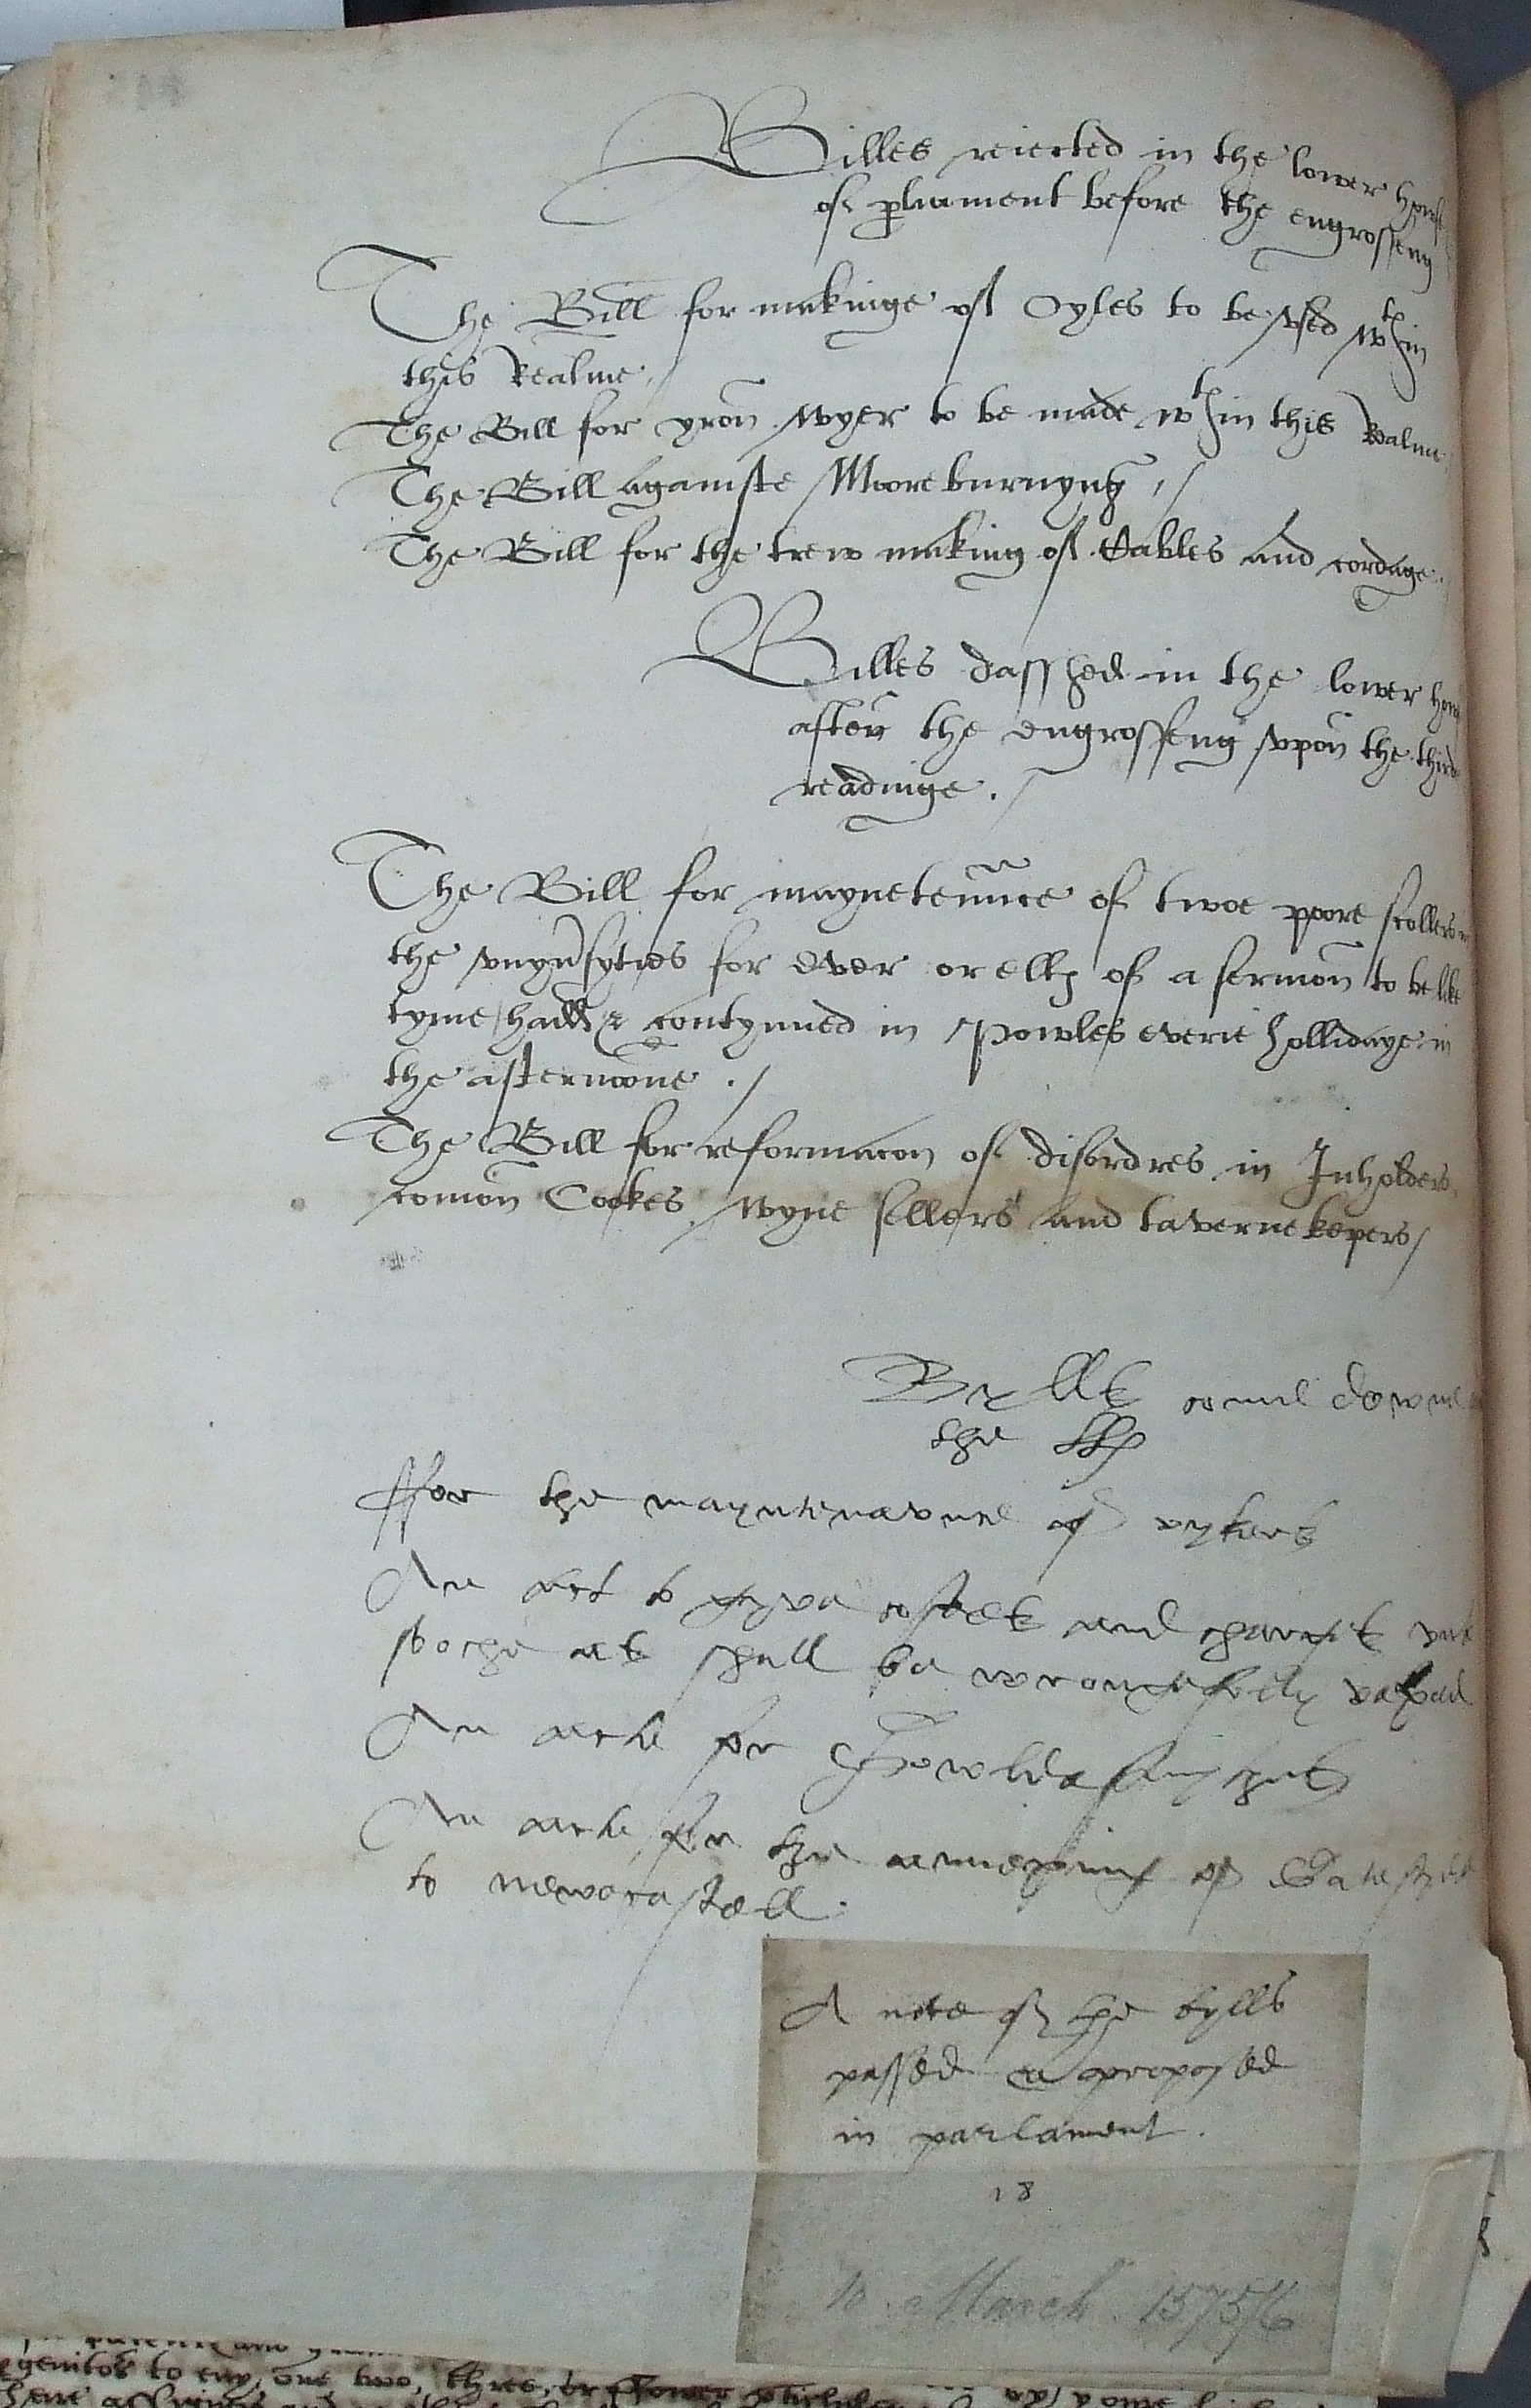 Billes reiected in the lower howse
of p̱liament before the engrosseng
The Bill for makinge of Oyles to be vsed wthin
this Realme./
The Bill for yron wyer to be made wthin this Realme
The Bill againste Moore burnyng ./
The Bill for the trew making of Cables and cordage./
Billes dasshed in the lower howse
after the engrosseng vpon the third
readinge ./
The Bill for maynetenn̄ce of twoe poore scollers in
the vnyv̉syties for ever or elles of a sermon to be like
tyme hadd & contynued in Powles everie hollidaye in
the afternoone ./
The Bill for reformac̃on of disordres in Inholders
com̄on Cookes wyne sellers and taverne kepers /
Bylles come downe
the
ffor the mayntenaunce of
An act to gyve costes and charges
soche as shall be wrongefully vexed
An acte for Gowldesmythes
An acte for the annexing of Gateshed
to newcastell.
A note of the bylls
passed & proposed
in parlament.
18
10. March 1575/6
genitos to eny, one two, three, or fower